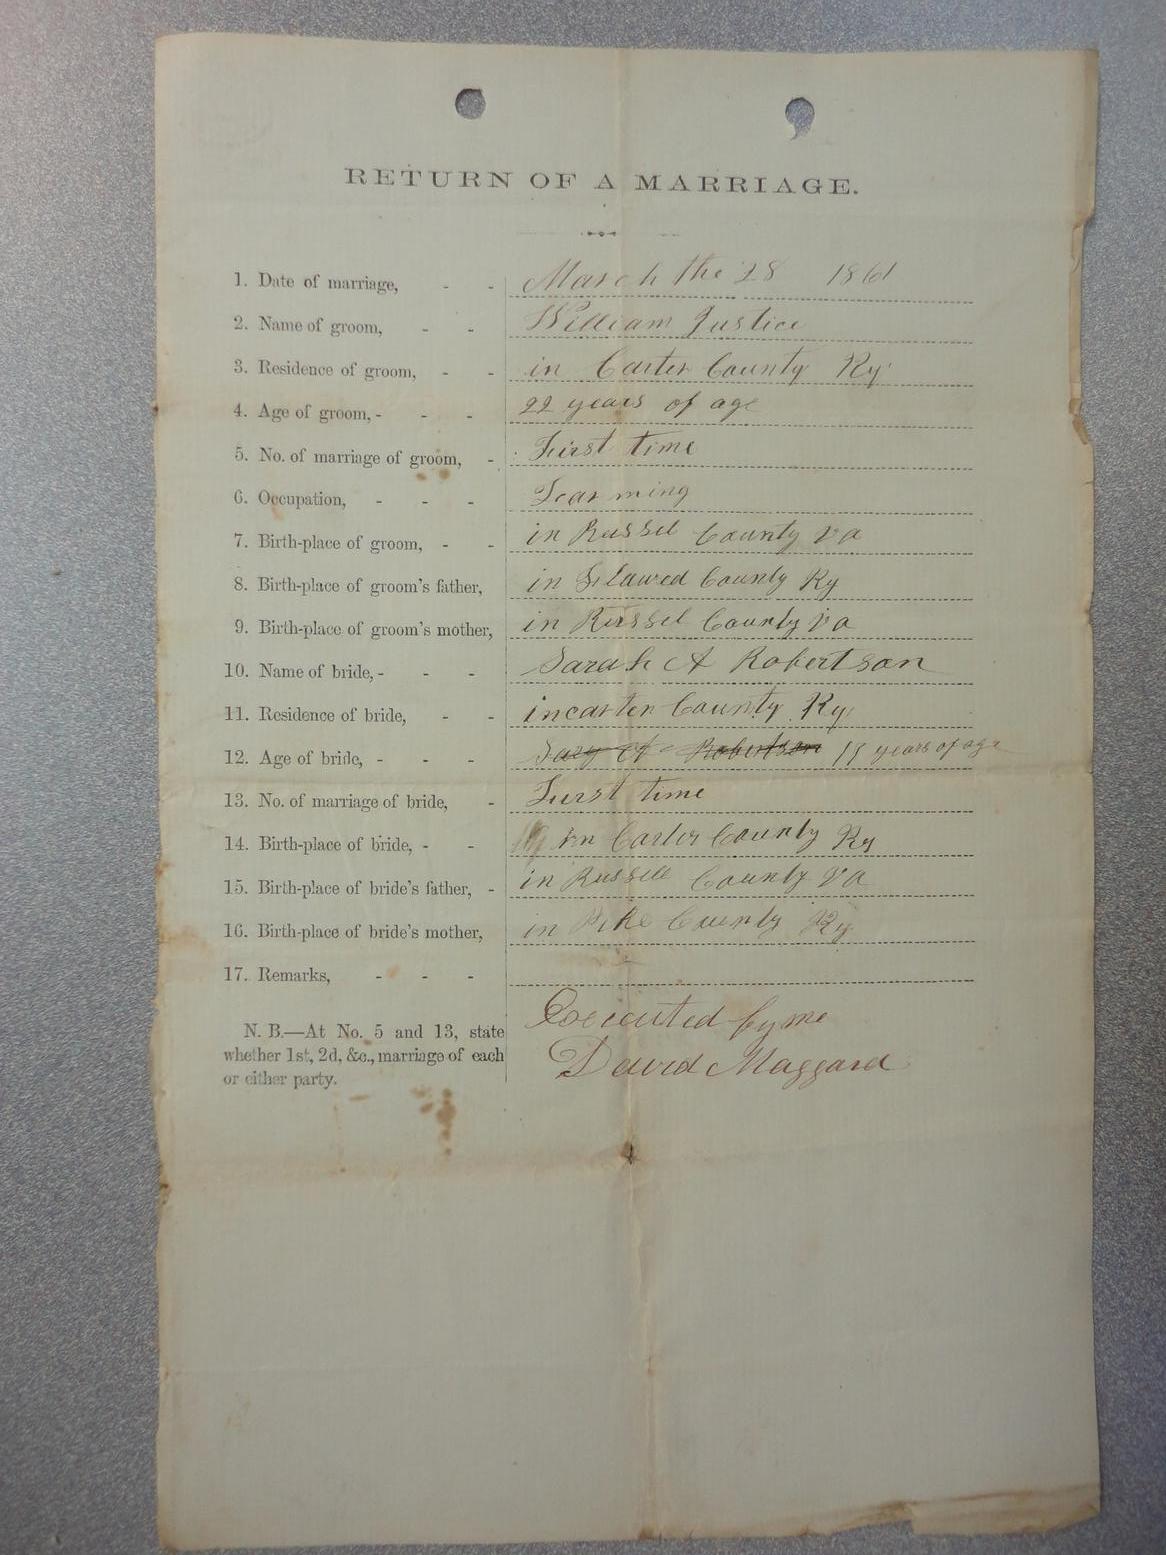 RETURN OF A MARRIAGE.
1. Date of marriage, - - March the 28 1861
2. Name of groom, - - William Justice
3. Residence of groom, - - in Carter County Ky
4. Age of groom, - - - 22 years of age
5. No. of marriage of groom, - First time
6. Occupation, - - - Fearming
7. Birth-place of groom, - - in Russel County Va
8. Birth-place of groom's father, in County Ky
9. Birth-place of groom's mother, in Russel County Va
10. Name of bride, - - - Sarah A Robertson
11. Residence of bride, - - in carter County Ky
12. Age of bride, - - - Robertson years of age
13. No. of marriage of bride, - Furst time
14. Birth-place of bride, - - in Carter County Ky
15. Birth-place of bride's father, - in Russell County Va
16. Birth-place of bride's mother, in Pike County Ky
17. Remarks, - - -
N. B.—At No. 5 and 13, state
whether 1st, 2d, &c., marriage of each
or either party.
Executed by me
David Maggard